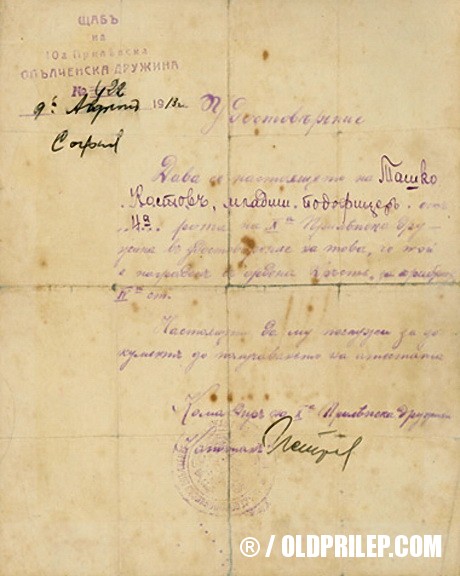 ЩАБЪ
на
10а Прилѣпска
ОПЪЛЧЕНСКА ДРУЖИНА
№ 422
9й Априлий 1913 г.
София
Удостовѣрение
Дава се настоящето на Ташко
Костовъ, младши подофицеръ отъ
4а рота на Xа Прилѣпска дру-
жина въ удостовѣрение за това, че той
е награденъ съ ордена за храбрость
IV ст.
Настоящето да му послужи за до-
кументъ до
Командиръ на Xа Прилѣпска дружина
Капитанъ
® / OLDPRILEP.COM